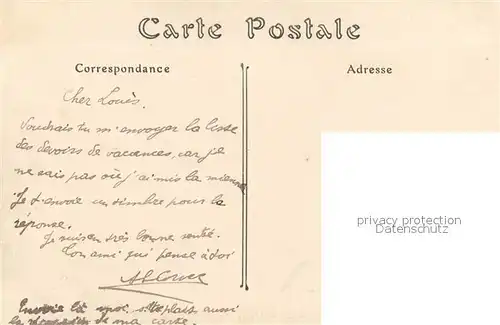 Carte Postale
Correspondance
Adresse
Cher Louis.
Voudrais tu m'envoyer la liste
des devoirs de vacances, car je
ne sais pas où j'ai mis la mienne
Je t'envoie un timbre pour la
réponse.
Je suis en très bonne santé.
Ton ami qui pense à toi
Envoie là moi, s'il te plaît aussi
la de ma carte.
privacy protection
by Media Oldthing